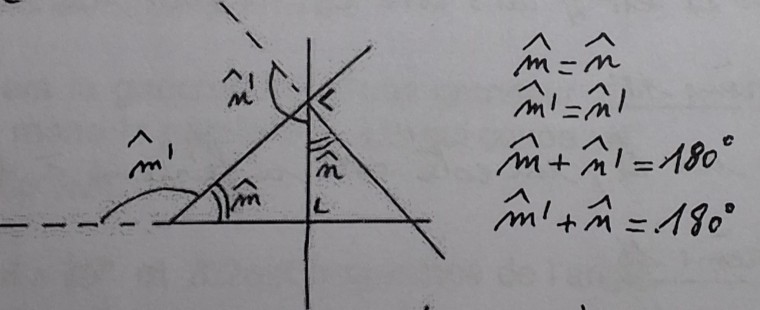 n̂'
m̂'
m̂
n̂
m̂ = n̂
m̂' = n̂'
m̂ + n̂' = 180°
m̂' + n̂ = 180°